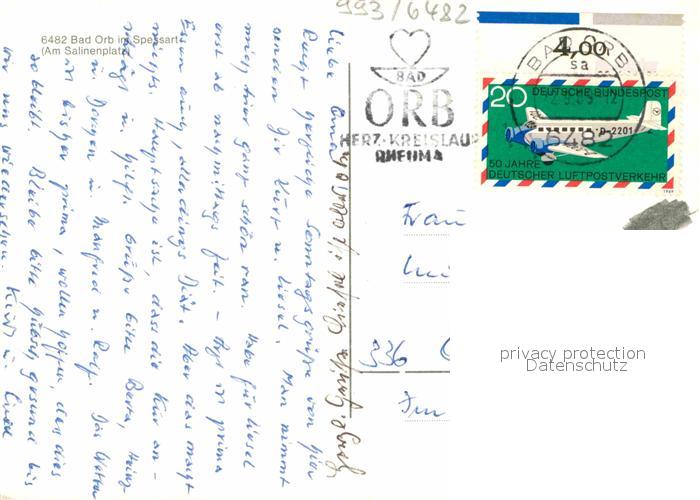 993/6482
6482 Bad Orb im Spessart
(Am Salinenplatz)
BAD
ORB
HERZ-KREISLAUF
RHEUMA
BAD ORB
4,00
sa
6482
20
DEUTSCHE BUNDESPOST
D-2201
50 JAHRE
DEUTSCHER LUFTPOSTVERKEHR
1969
Liebe
Recht herzliche Sonntagsgrüße von hier
senden Dir Kurt u. Liesel. Man nimmt
mich hier ganz schön ran. Habe für Liesel
erst ab nachmittags Zeit. – Kost ist prima
Essen auch, allerdings Diät. Aber das macht
nichts. Hauptsache ist, dass die Kur an-
schlägt u. hilft. Grüße bitte Berta, Heinz
u. Jürgen u. Manfred u. Ralf. Das Wetter
ist bisher prima, wollen hoffen, dass dies
so bleibt. Bleibe bitte hübsch gesund bis
wir uns wiedersehen. Kurt u. Liesel
Frau
336
privacy protection
Datenschutz